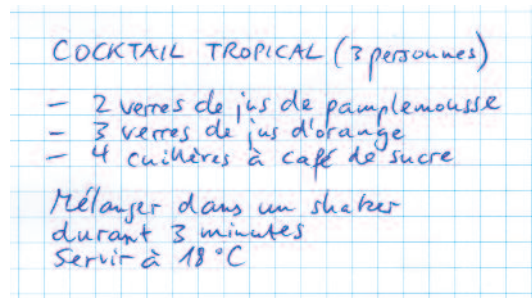 COCKTAIL TROPICAL (3 personnes)
- 2 verres de jus de pamplemousse
- 3 verres de jus d'orange
- 4 cuillères à café de sucre
Mélanger dans un shaker
durant 3 minutes
Servir à 18 °C